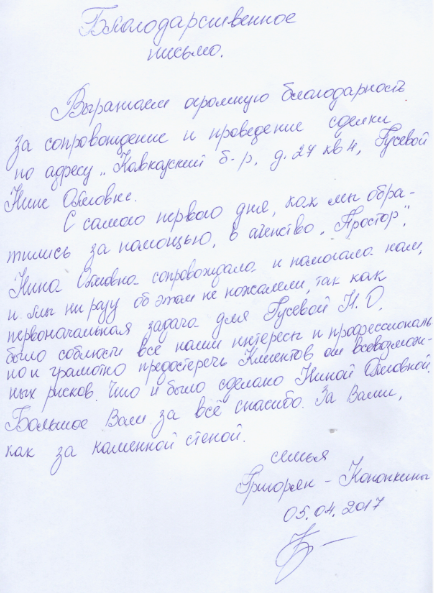 Благодарственное
письмо.
Выражаем огромную благодарность
за сопровождение и проведение сделки
по адресу „Кавказский б-р, д. 27 кв 4, Гусевой
Нине Олеговне.
С самого первого дня, как мы обра-
тились за помощью, в агенство „Простор",
Нина Олеговна сопровождала и помогала нам,
и мы ни разу об этом не пожалели, так как
первоначальная задача для Гусевой Н.О.
было соблюсти все наши интересы и профессиональ
но и грамотно предостеречь Клиентов от всевозмож-
ных рисков. Что и было сделано Ниной Олеговной.
Большое Вам за всё спасибо. За Вами,
как за каменной стеной.
семья
Григорьян - Кононкина
05.04.2017